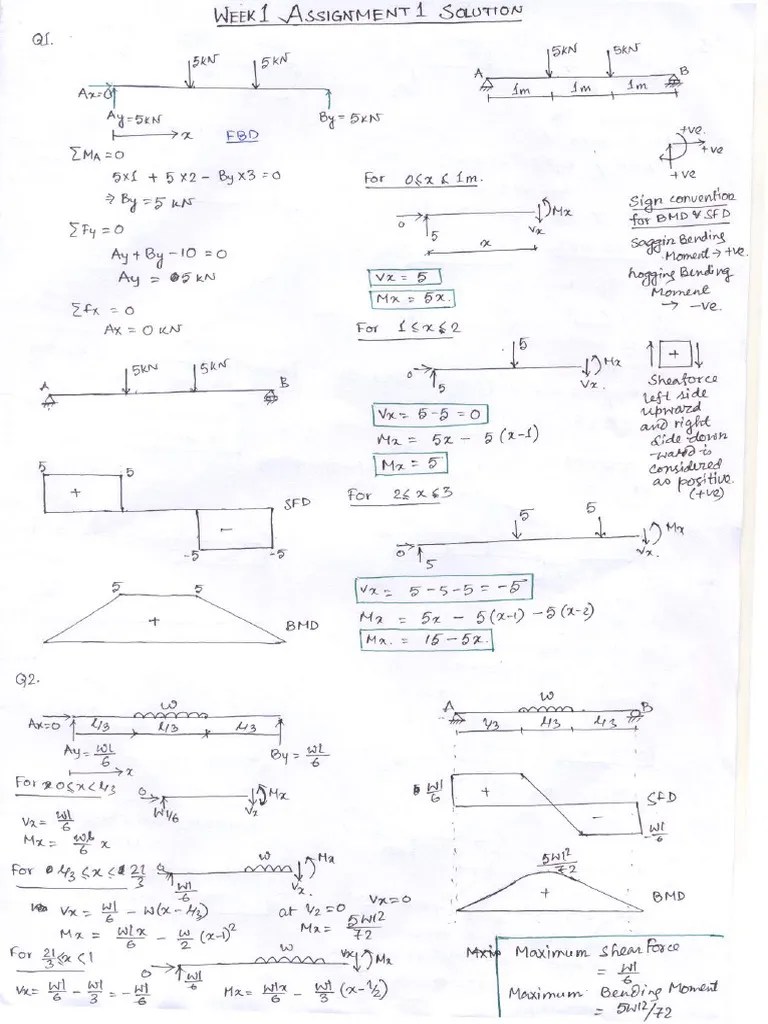 WEEK 1 ASSIGNMENT 1 SOLUTION
Q1.
5kN 5kN
Ax=0
Ay=5kN By=5kN
x FBD
5kN 5kN
A B
1m 1m 1m
ΣMA=0
5x1 + 5x2 - Byx3 = 0
⇒ By = 5 kN
ΣFy=0
Ay + By - 10 = 0
Ay = 5 kN
Σfx = 0
Ax = 0 kN
5kN 5kN
A B
5 5
+
SFD
-
-5 -5
5 5
+
BMD
For 0≤x≤1m.
Mx
0 5 Vx
x
Vx = 5
Mx = 5x.
For 1≤x≤2
5
Mx
0 5 Vx.
Vx = 5-5 = 0
Mx = 5x - 5(x-1)
Mx = 5
For 2≤x≤3
5 5
Mx
0 5 Vx.
Vx = 5-5-5 = -5
Mx = 5x - 5(x-1) - 5(x-2)
Mx. = 15-5x.
+ve.
+ve
+ve
Sign convention
for BMD & SFD
Saggin Bending
Moment → +ve.
hogging Bending
Moment
→ -ve.
+
Sheaforce
left side
upward
and right
side down
-ward is
considered
as positive.
(+ve)
Q2.
w
Ax=0 l/3 l/3 l/3
Ay = wl/6 By = wl/6
x
For 0≤x<l/3
0 Mx
wl/6 Vx
Vx = wl/6
Mx = wl/6 x
For l/3≤x≤2l/3
w Mx
wl/6 Vx.
Vx = wl/6 - w(x-l/3) at l/2=0 Vx=0
Mx = wlx/6 - w/2 (x-1)² Mx = 5wl²/72
For 2l/3≤x<1
w Vx Mx
0 wl/6
Vx = wl/6 - wl/3 = -wl/6 Mx = wlx/6 - wl/3 (x-l/2)
w
A B
l/3 l/3 l/3
wl/6
+
SFD
-
-wl/6
5wl²/72
+
BMD
Maximum Shear Force
= wl/6
Maximum Bending Moment
= 5wl²/72